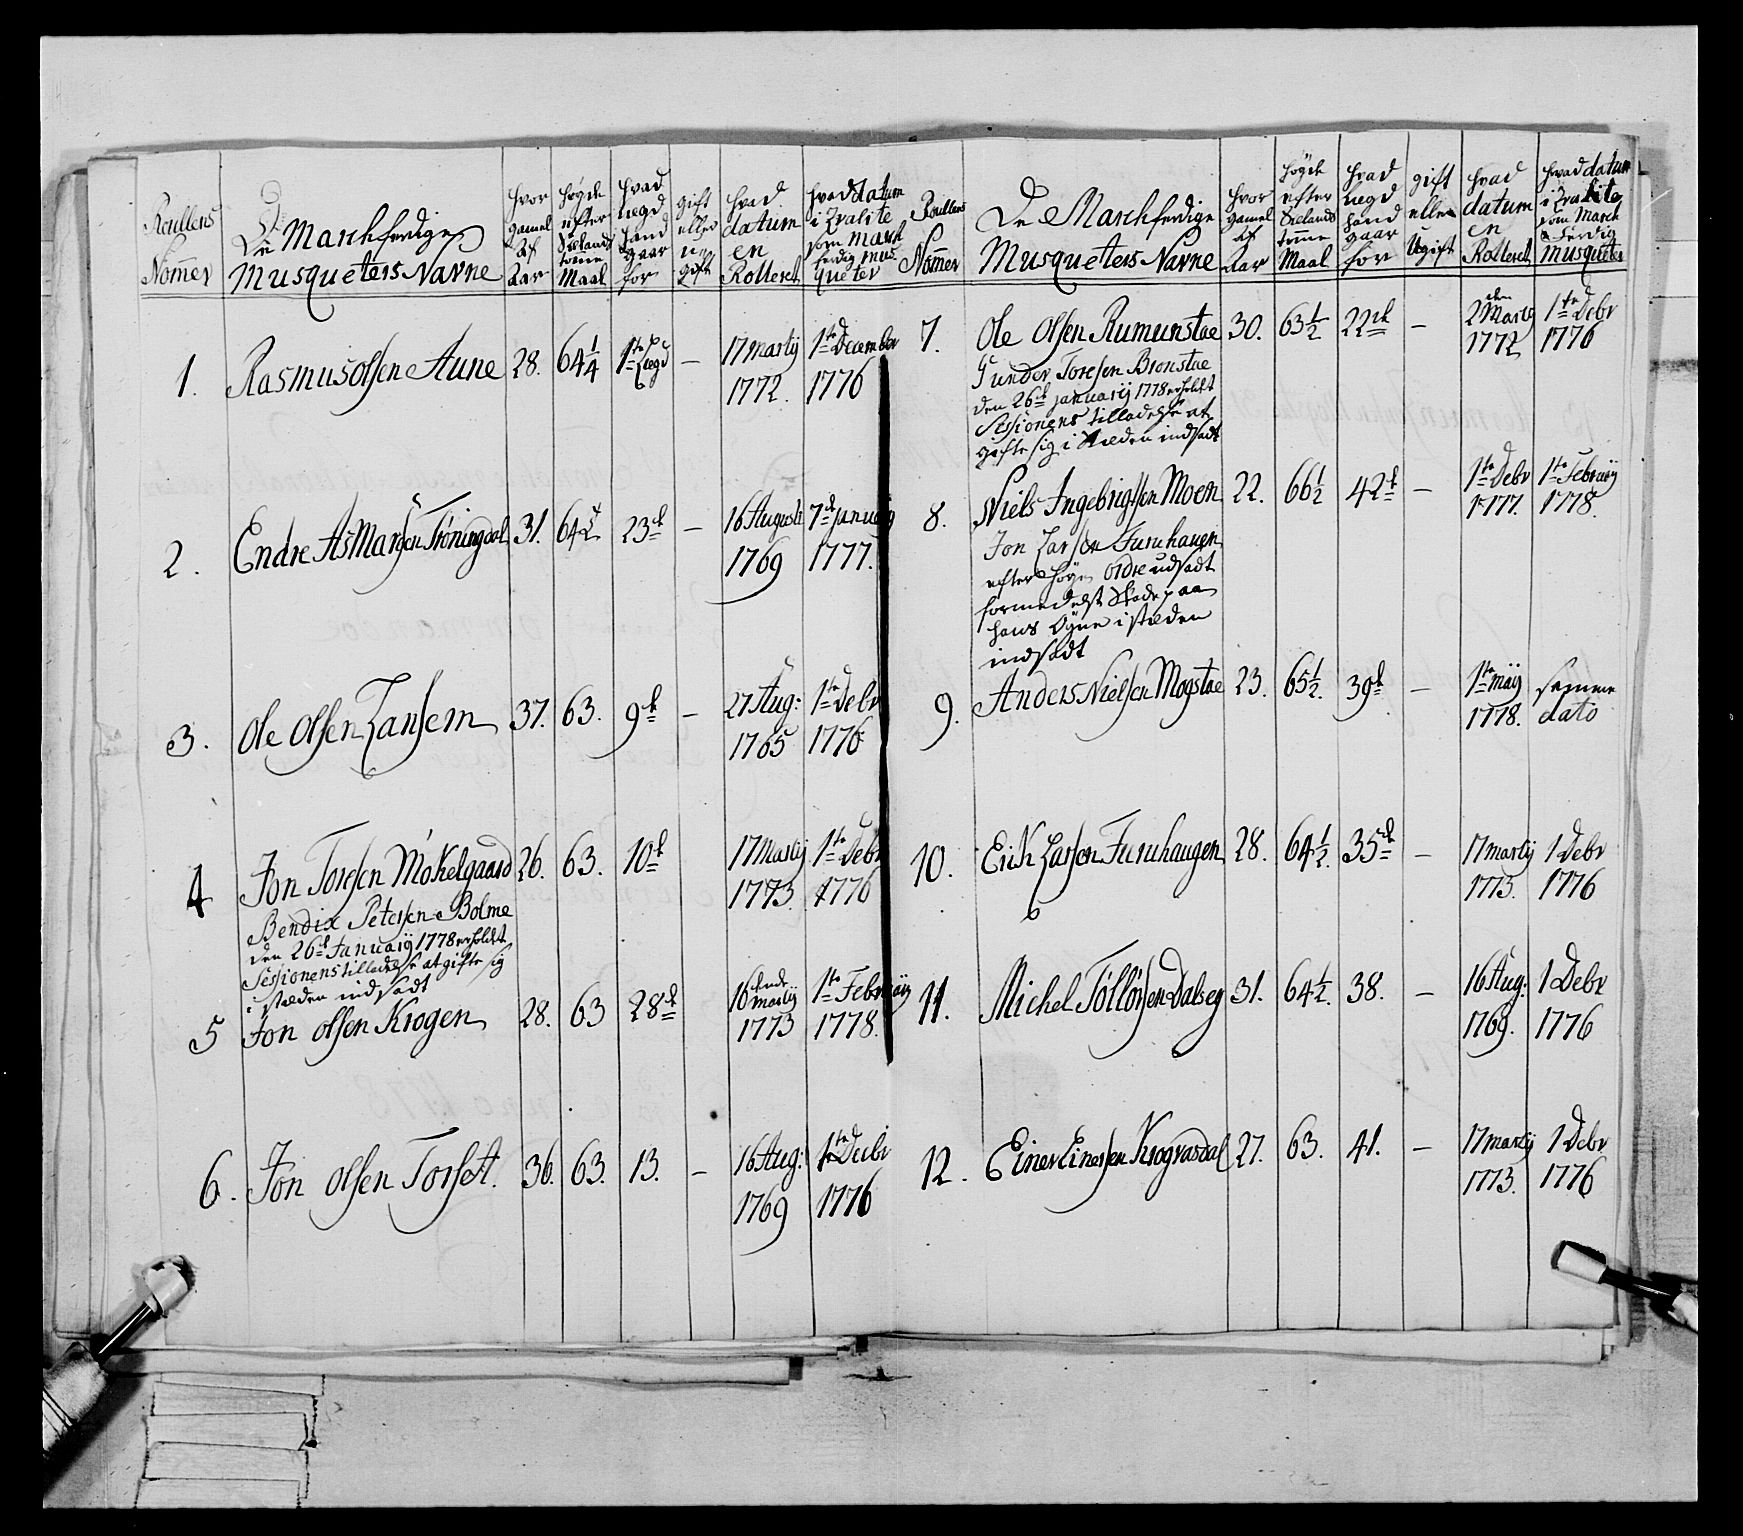 Roullens
Nom̄er
De Marchferdige
Musqueters Navne
hvor
gamel
af
Aar
høyde
efter
Siellands
tom̄e
Maal
hvad
Lægd
hand
gaar
for
gift
eller
u
gift
hvad
datum
en
Rolleret
hvad datum
i Qvalite
som March
ferdig Mus
queter
1. Rasmus Olsen Aune 28. 64 1/4 1te Lægd — 17 Martij 1te December
1772. 1776
2. Endre AsMarsen Trøningdal 31. 64 1/2 23de — 16 Augusti 7de Januarij
1769 1777.
3. Ole Olsen Zansem 37. 63. 9de — 27 Aug: 1te Debr
1765 1776
4 Jon Toresen Møkelgaard 26. 63. 10de 17 Martij 1te Debr
1773. 1776
Bendix Petersen Bolme
den 26de Januarij 1778 erholdt
Sessionens tilladelse at gifte sig
i stæden indsadt
5 Jon Olsen Krogen 28. 63 28de 16 Martij 1te Februarij
1773 1778.
6. Jon Olsen Torset. 36. 63. 13. — 16 Aug: 1te Decbr
1769 1776
Roullens
Nom̄er
De Marchferdige
Musqueters Navne
hvor
gamel
af
Aar
høyde
efter
Siellands
tom̄e
Maal
hvad
Lægd
hand
gaar
for
gift
eller
Ugift
hvad
datum
en
Rolleret
hvad datum
i Qvalite
som March
ferdig
musqueter
7. Ole Olsen Rumunstae 30. 63 1/2 22de — 2den Martij 1te Debr
1772 1776
Gunder Toresen Bronstae
den 26de Januarij 1778 erholdt
Sessionens tilladelse at
gifte sig i stæden indsadt
8. Niels Ingebrigtsen Moen 22. 66 1/2 42de — 1te Debr 1te Februarij
1777. 1778.
Jon Larsen Furuhaugen
efter høy Ordre udsadt
formedelst Skade paa
hans Øyne i stæden
indsadt
9. Anders Nielsen Mogstae 23. 65 1/2. 39de — 1te Maij samme
1778. dato
10. Erich Larsen Furuhaugen 28. 64 1/2. 35de — 17 Martij 1 Debr
1773. 1776
11. Michel Tølløfsen Dalseg 31. 64 1/2. 38. — 16 Aug: 1 Debr
1769. 1776
12. Einer Einersen Krogvasdal 27. 63. 41. — 17 Martij 1 Debr
1773. 1776